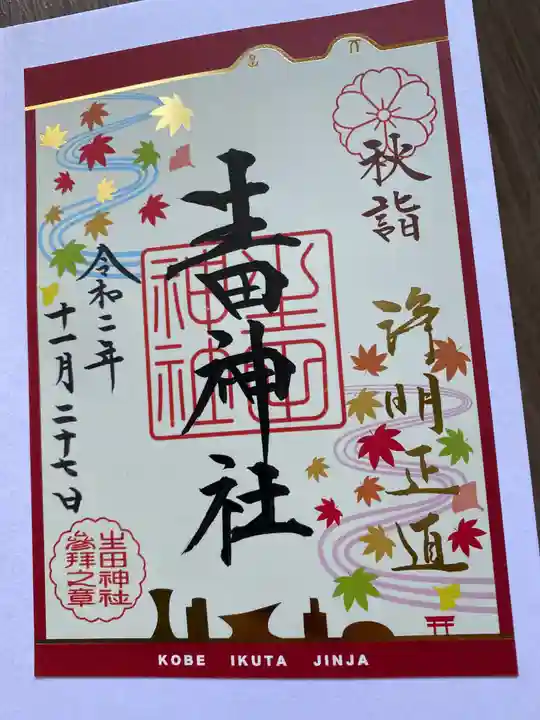 秋詣
浄明正直
生田神社
生田
神社
令和二年
十一月二十七日
生田神社
參拜之章
KOBE IKUTA JINJA